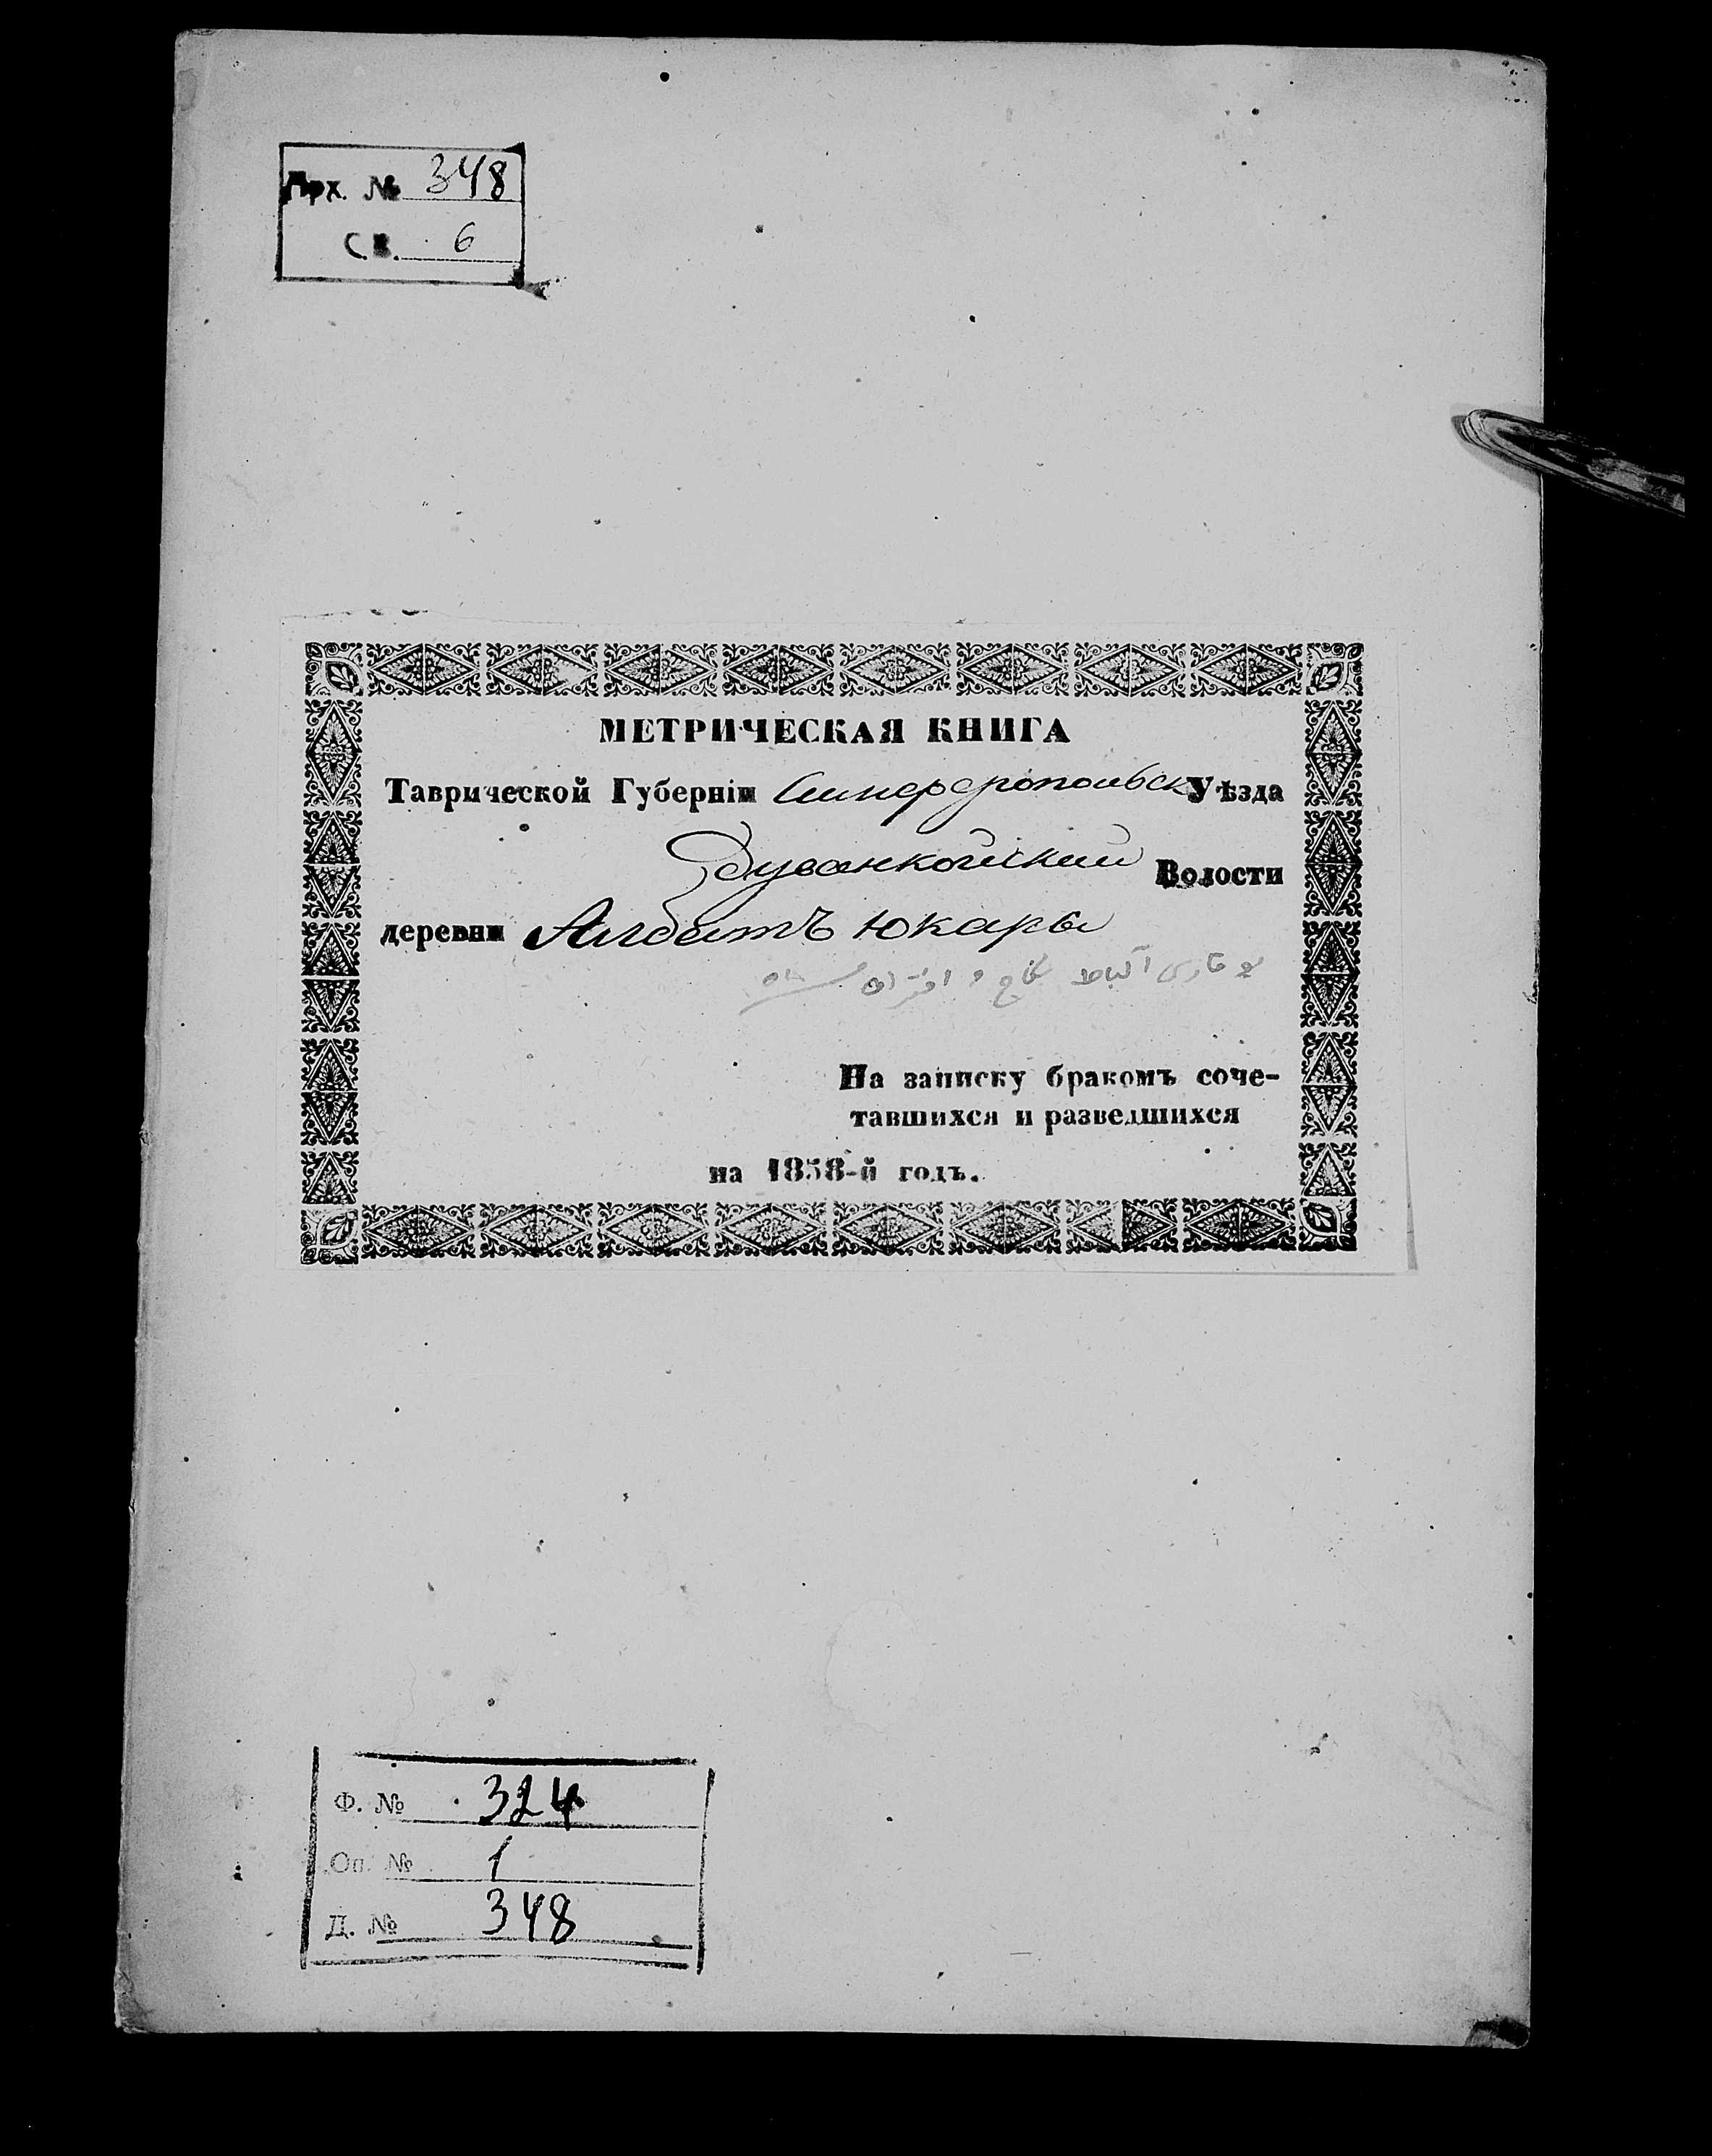 Арх. № 348
Св. 6
МЕТРИЧЕСКАЯ КНИГА
Таврической Губерніи Симферопольск Уѣзда
Дуванкойский Волости
деревни Албатъ юкары
يوقارى آلباط نكاح و افتراق
На записку бракомъ соче-
тавшихся и разведшихся
на 1858-й годъ.
Ф. № 324
Оп. № 1
Д. № 348